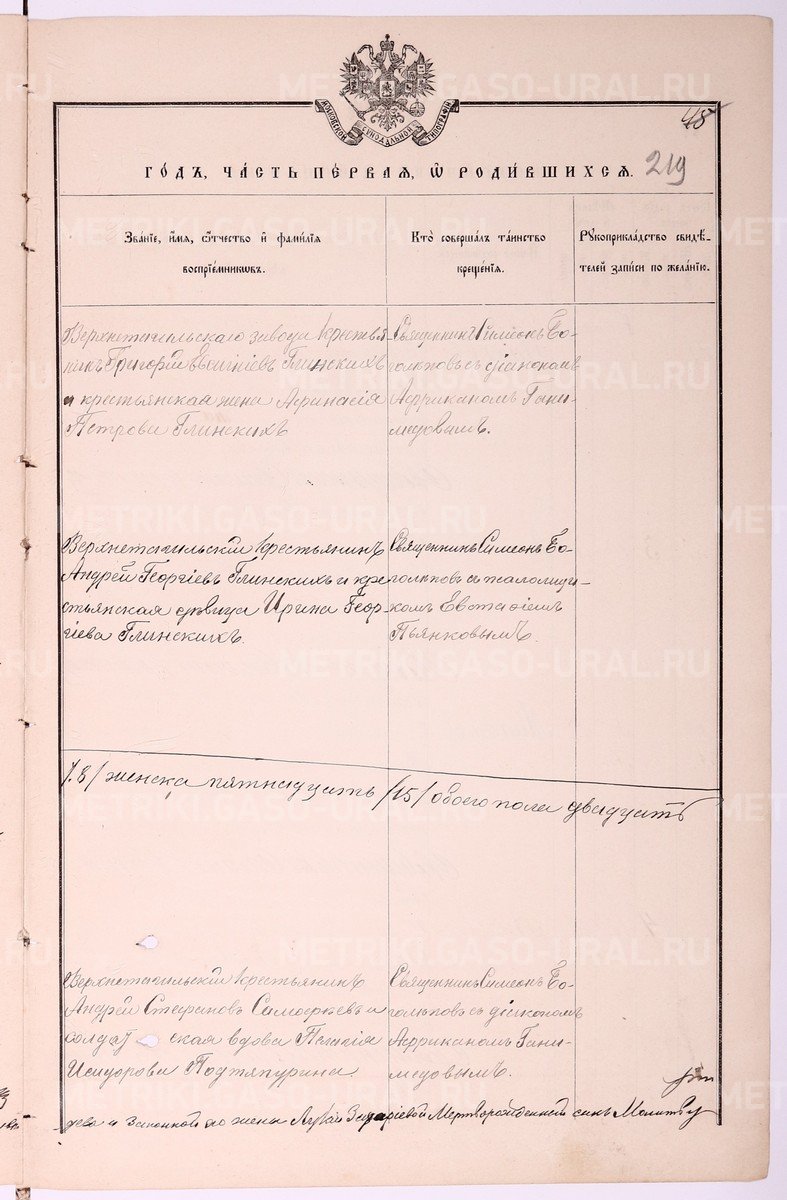 METRIKI.GASO-URAL.RU
МОСКОВСКОЙ СѴНОДАЛЬНОЙ ТИПОГРАФІИ
48
ГОДЪ, ЧАСТЬ ПЕРВАЯ, Ѡ РОДИВШИХСЯ.
219
Званіе, имя, отчество и фамилія
воспріемниковъ.
Кто совершалъ таинство
крещенія.
Рукоприкладство свидѣ-
телей записи по желанію.
Верхнетагильскаго завода крестья-
никъ Григорій Глинскихъ
и крестьянская жена Афанасія
Петрова Глинскихъ
Священникъ Симеонъ Бо-
голѣповъ съ діакономъ
Африканомъ Гани-
медовымъ.
Верхнетагильскій крестьянинъ
Андрей Георгіевъ Глинскихъ и кре-
стьянская дѣвица Ирина Геор-
гіева Глинскихъ.
Священникъ Симеонъ Бо-
голѣповъ съ псаломщи-
комъ Евстафіемъ
Пьянковымъ.
/8/ женска пятнадцать /15/ обоего пола двадцать
Верхнетагильскій крестьянинъ
Андрей Стефановъ и
солдатская вдова Пелагія
Исидорова Подтяпурина.
Священникъ Симеонъ Бо-
голѣповъ съ діакономъ
Африканомъ Гани-
медовымъ.
и законной его жены Мертворожденный сынъ Молитву